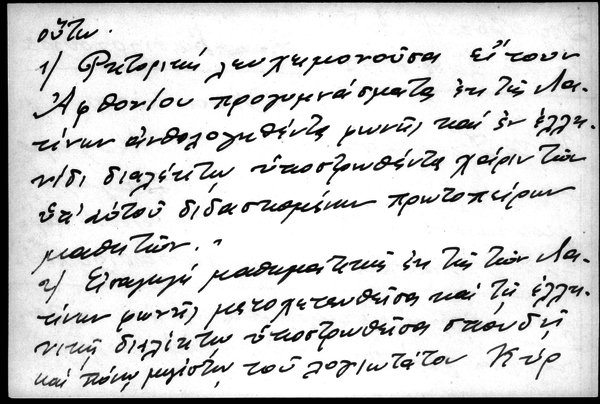 οὕτω.
1) Ρητορική λευχειμονοῦσα εἴτουν
Ἀφθονίου προγυμνάσματα ἐκ τῆς Λα-
τίνων ἀνθολογηθέντα φωνῆς καί ἐν ἑλλη-
νίδι διαλέκτῳ ὑποστρωθέντα χάριν τῶν
ὑπ' αὐτοῦ διδασκομένων πρωτοπείρων
μαθητῶν."
2) Εἰσαγωγή μαθηματικῆς ἐκ τῆς τῶν Λα-
τίνων φωνῆς μετοχετευθεῖσα καί τῇ ἑλλη-
νικῇ διαλέκτῳ ὑποστρωθεῖσα σπουδῇ
καί πόνῳ μεγίστῳ τοῦ λογιωτάτου Κύρ